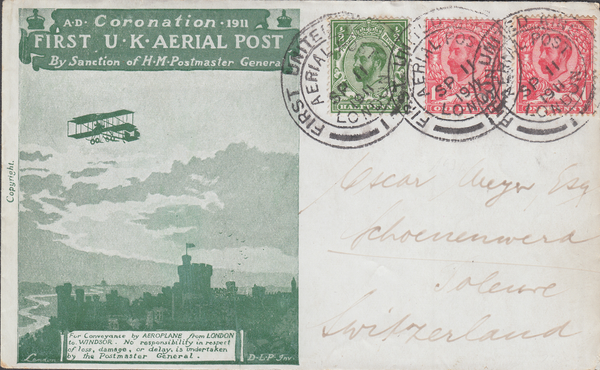 A·D· Coronation · 1911
FIRST U·K·AERIAL POST
By Sanction of H·M·Postmaster General
Copyright.
For Conveyance by AEROPLANE from LONDON
to WINDSOR. No responsibility in respect
of loss, damage, or delay, is undertaken
by the Postmaster General.
London
D·L·P· Inv.
HALFPENNY
FIRST UNITED
AERIAL POST
SP 11
LONDON
FIRST UNITED
AERIAL POST
SP 11
1911
LONDON
UNITED
POST
SP 11
LONDON
Oscar Meyer Esq
Schoenenwerd
Switzerland